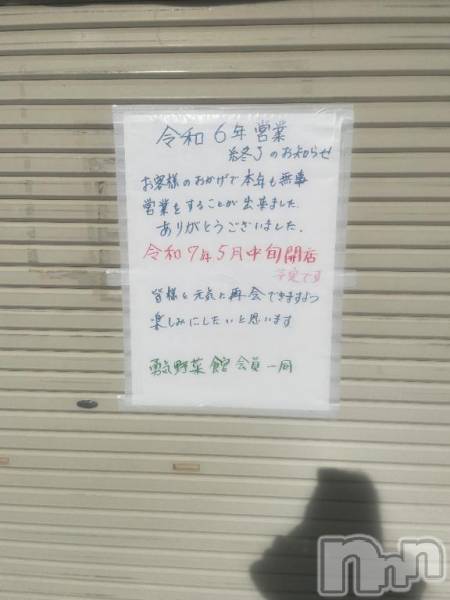 令和6年営業
終了のお知らせ
お客様のおかげで本年も無事
営業をすることが出来ました
ありがとうございました。
令和7年5月中旬開店
予定です
皆様と元気に再会できますよう
楽しみにしたいと思います
勇気野菜館会員一同
nnn